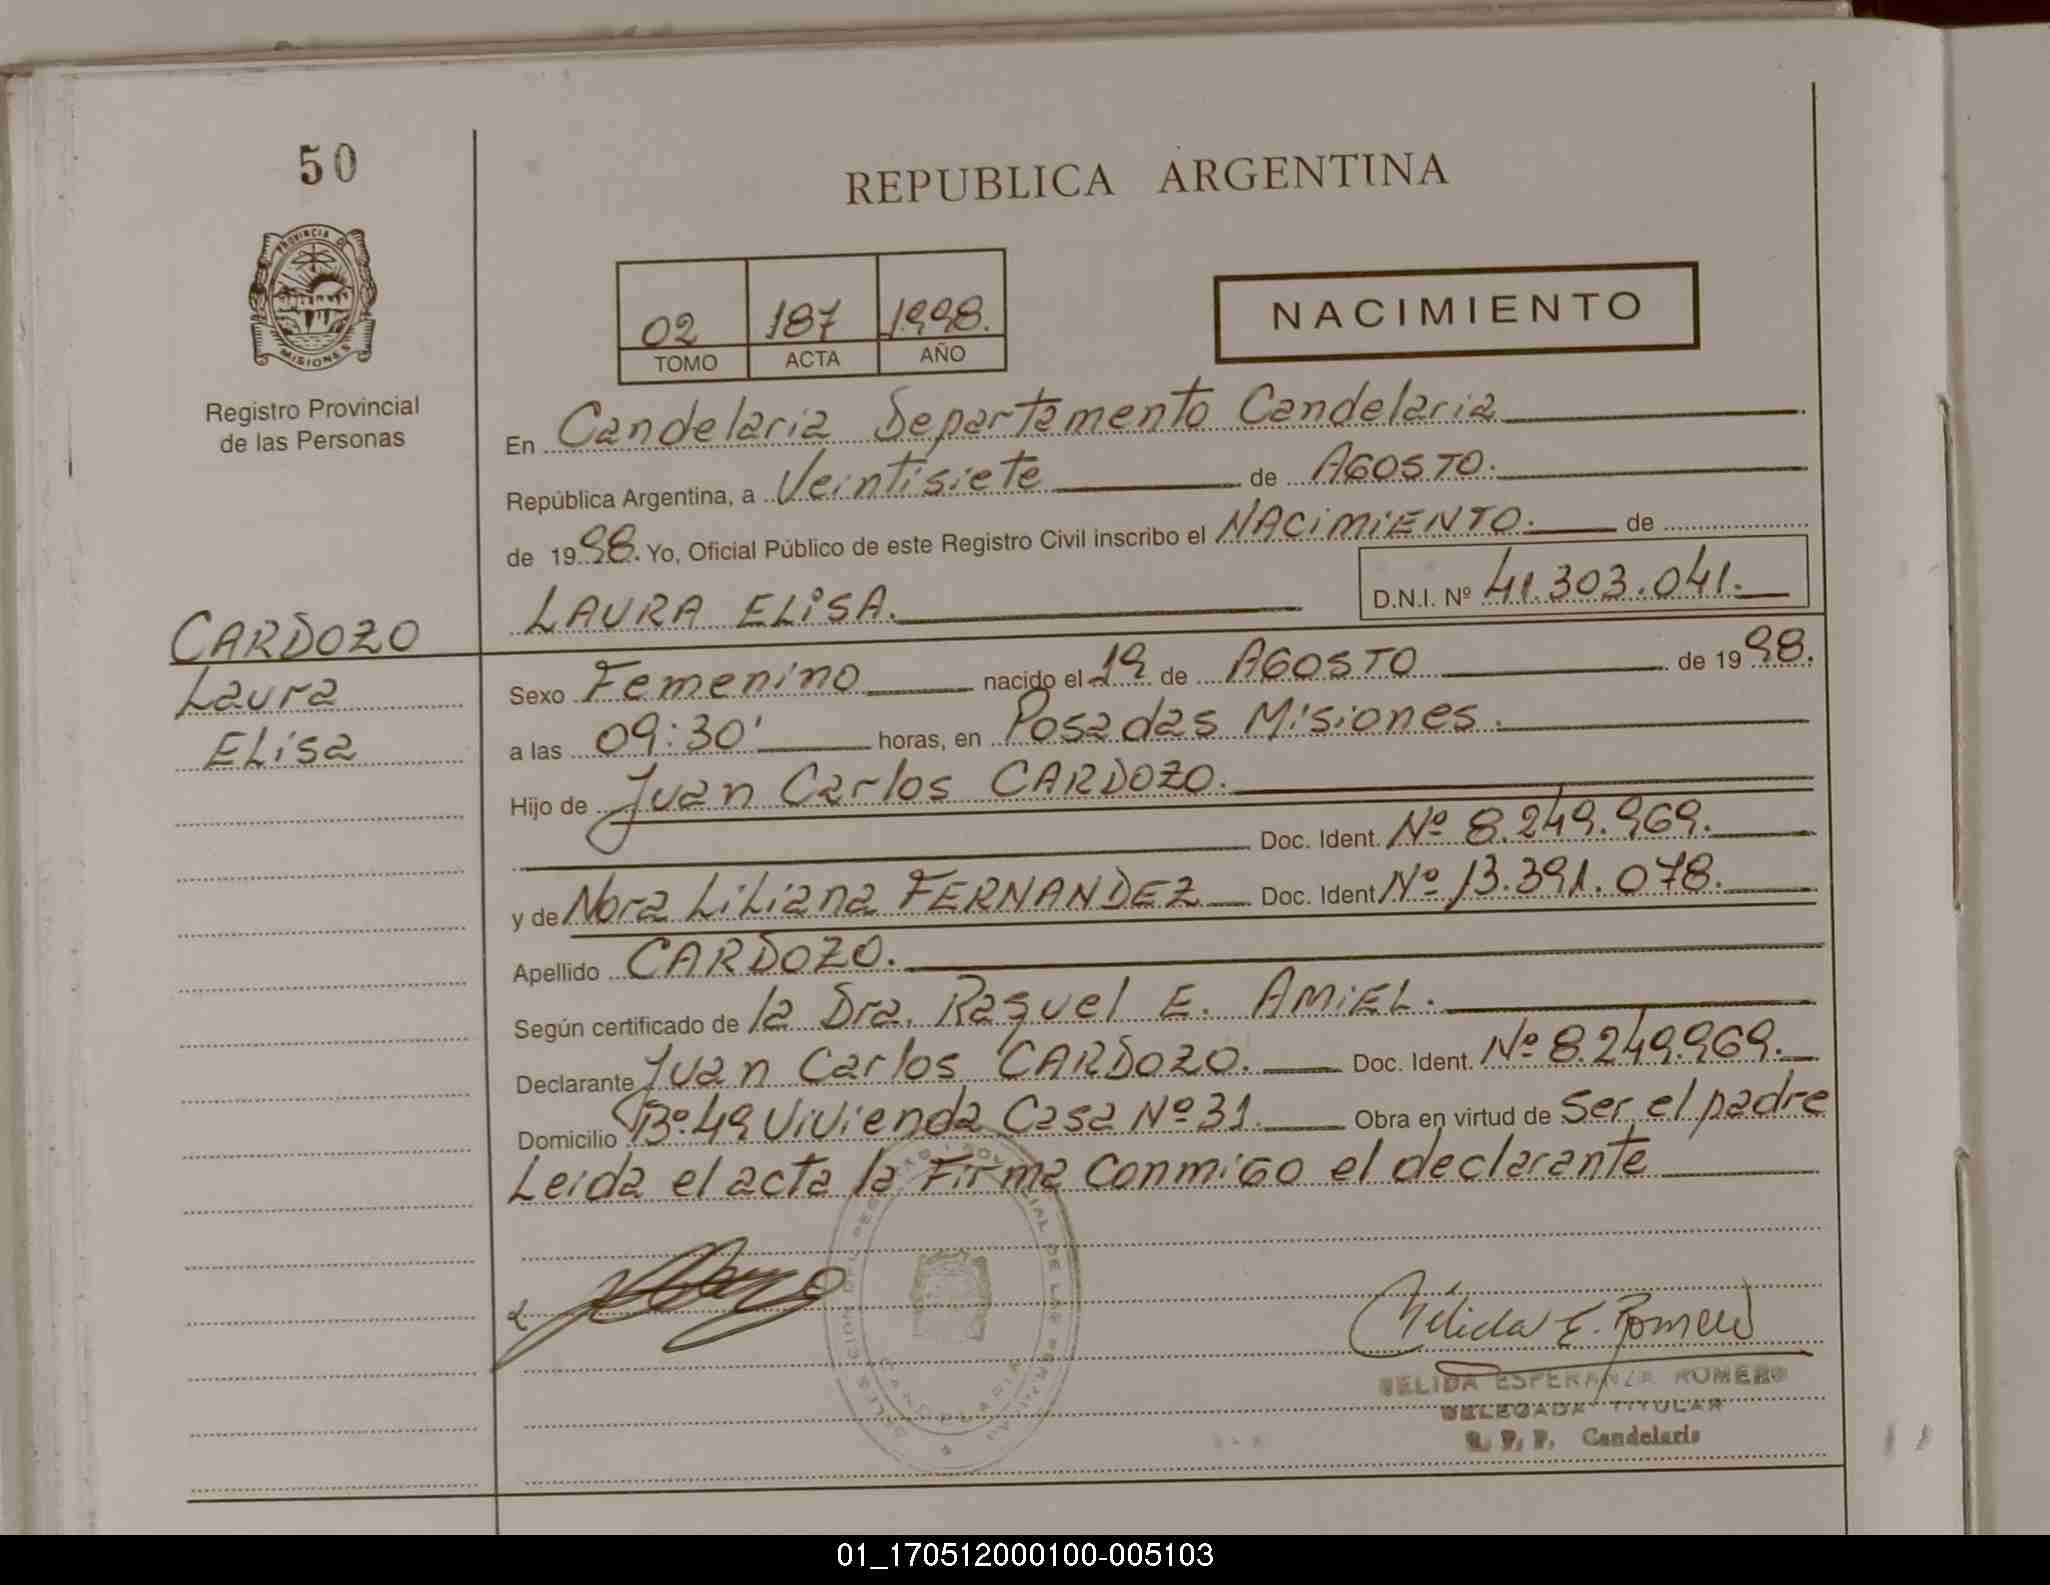 50
REPUBLICA ARGENTINA
PROVINCIA DE
MISIONES
02 187 1998.
TOMO ACTA AÑO
NACIMIENTO
Registro Provincial
de las Personas
En Candelaria Departamento Candelaria
República Argentina, a Veintisiete de AGOSTO.
de 1998. Yo, Oficial Público de este Registro Civil inscribo el NACIMIENTO. de
D.N.I. Nº 41.303.041.
LAURA ELISA.
CARDOZO
Laura
ELisa
Sexo Femenino nacido el 19 de AGOSTO de 1998.
a las 09:30' horas, en Posadas Misiones.
Hijo de Juan Carlos CARDOZO.
Doc. Ident. Nº 8.249.969.
y de Nora LiLiana FERNANDEZ Doc. Ident Nº 13.391.078.
Apellido CARDOZO.
Según certificado de la Dra. Raquel E. AMIEL.
Declarante Juan Carlos CARDOZO. Doc. Ident. Nº 8.249.969.
Domicilio Bº 49 Vivienda Casa Nº 31. Obra en virtud de Ser el padre
Leida el acta la Firma Conmigo el declarante
Nélida E. Romero
NELIDA ESPERANZA ROMERO
DELEGADA TITULAR
R. P. P. Candelaria
01_170512000100-005103